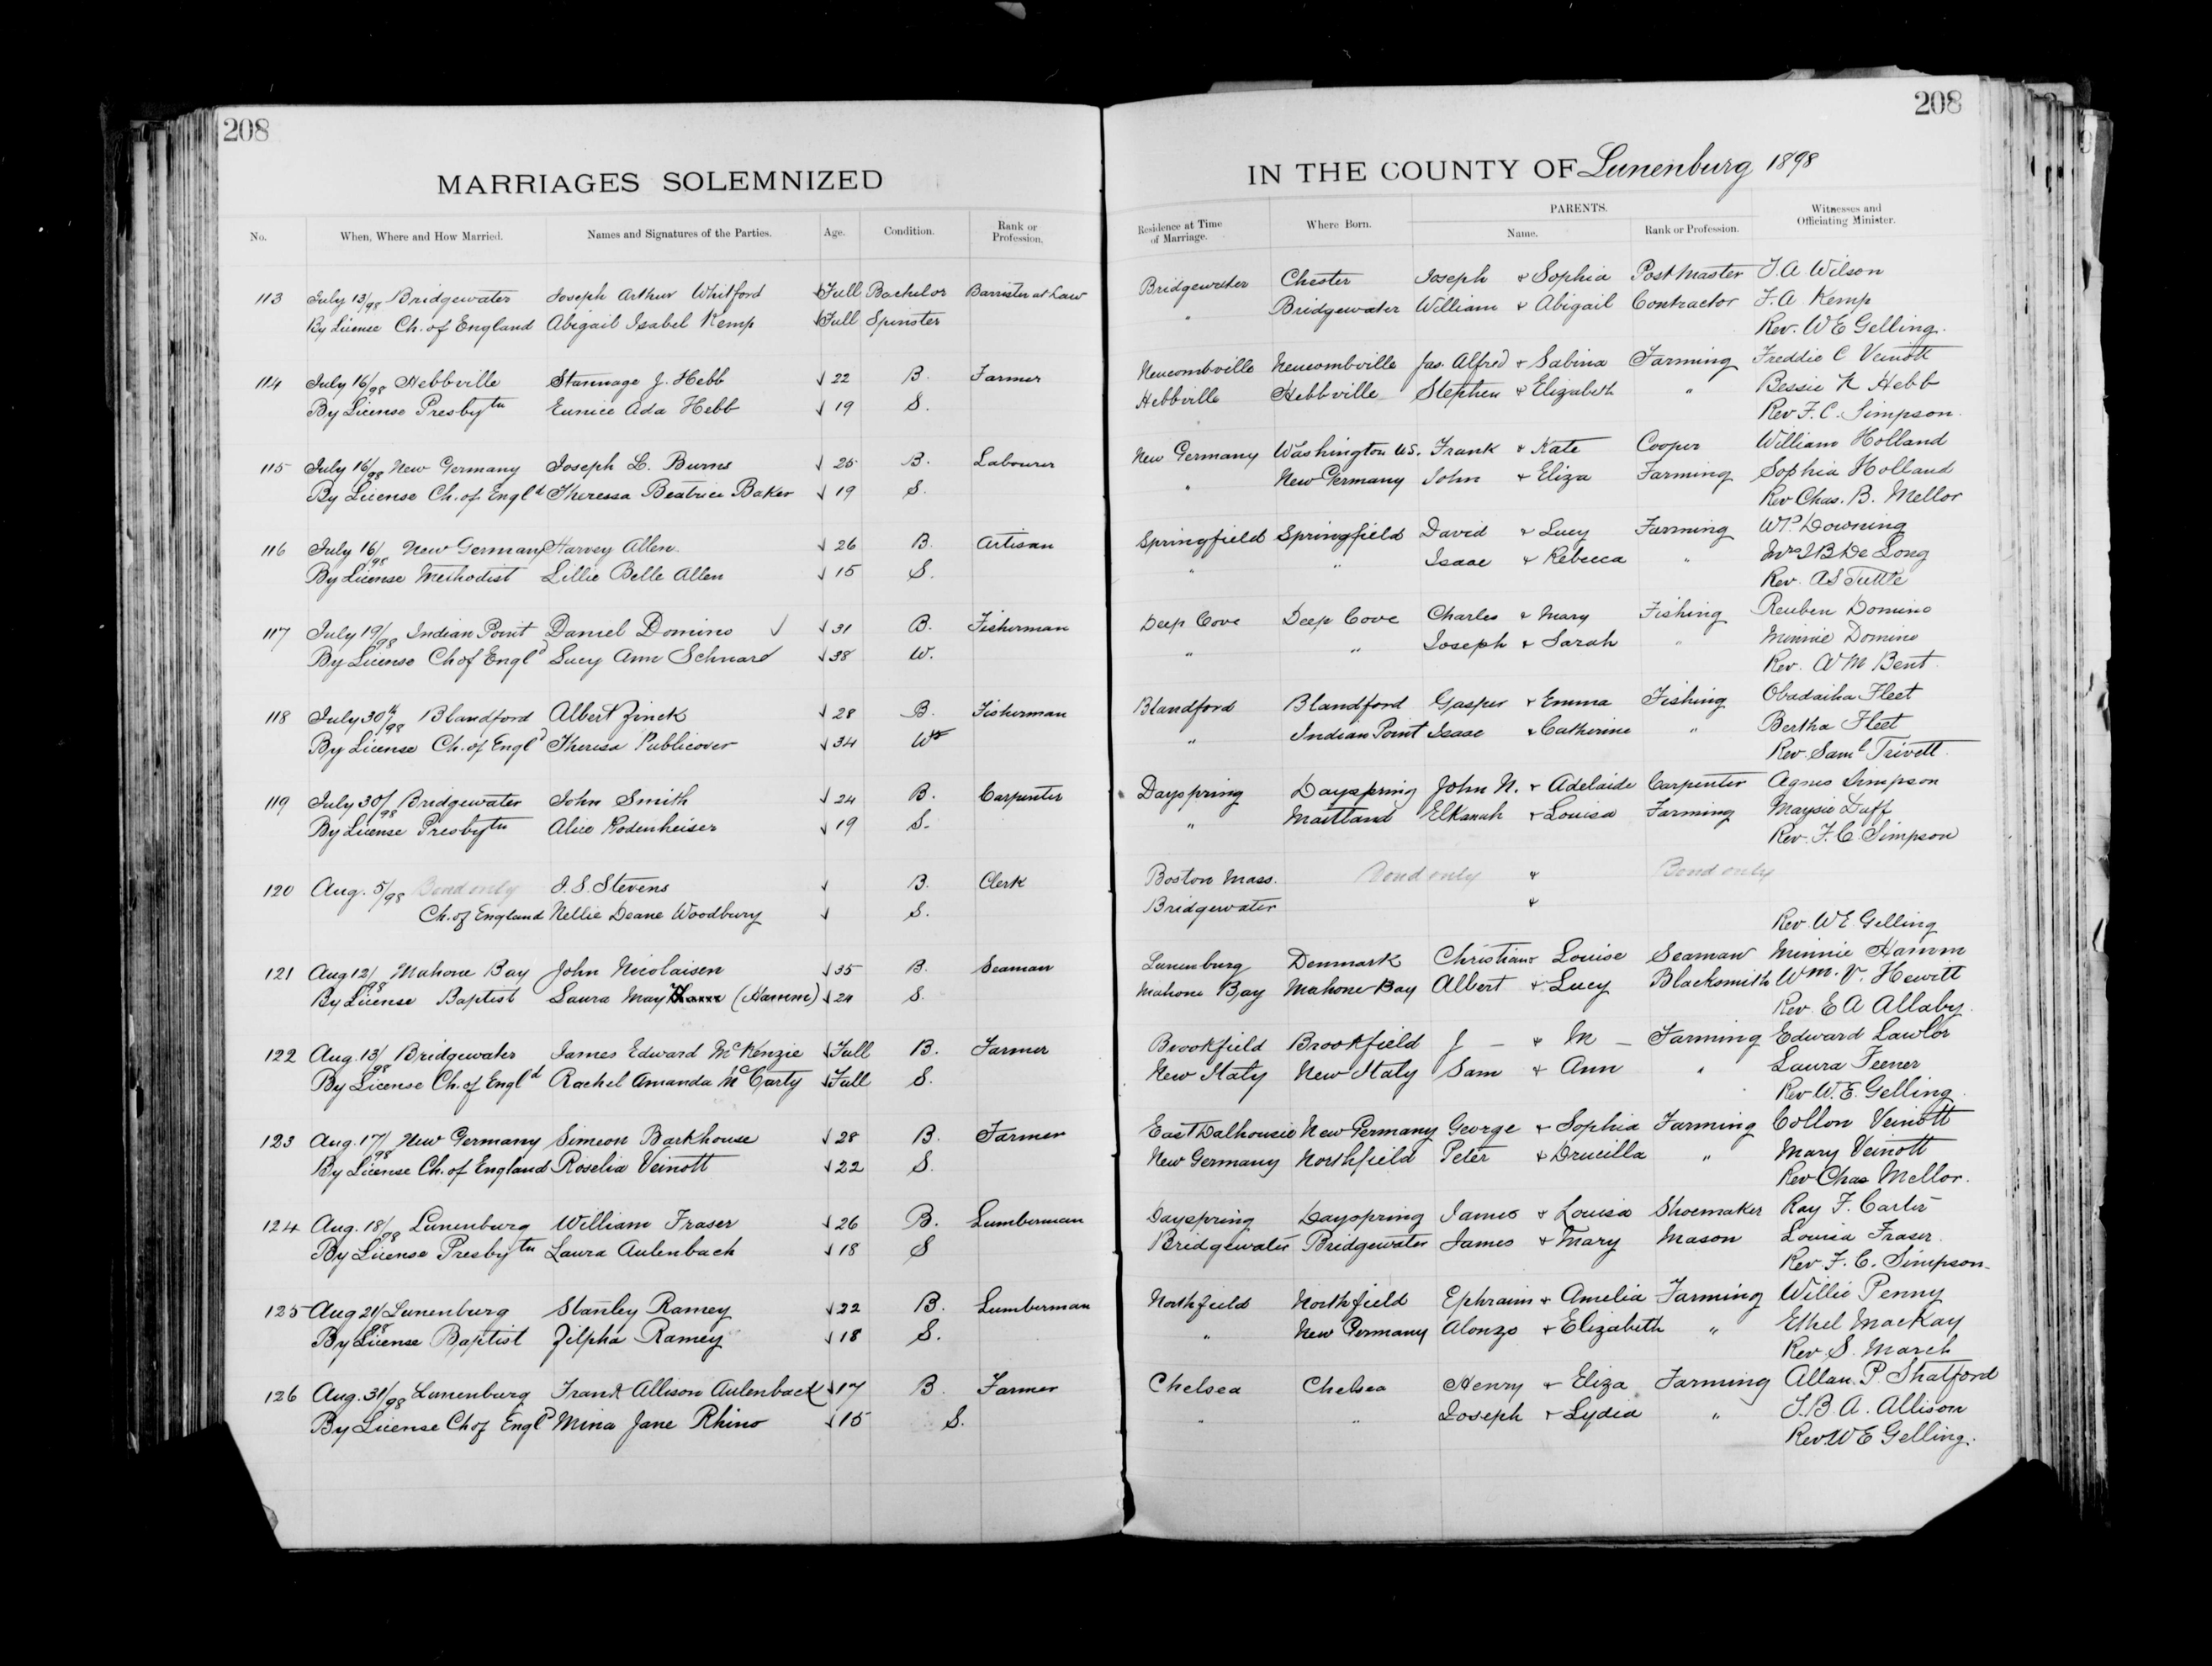 208
208
MARRIAGES SOLEMNIZED IN THE COUNTY OF Lunenburg 1898
No. When, Where and How Married. Names and Signatures of the Parties. Age. Condition. Rank or Profession. Residence at Time of Marriage. Where Born. PARENTS. Name. Rank or Profession. Witnesses and Officiating Minister.
113 July 13/98 Bridgewater Joseph Arthur Whitford √Full Bachelor Barrister at Law Bridgewater Chester Joseph & Sophia Post Master J. A Wilson
By License Ch. of England Abigail Isabel Kemp √Full Spinster " Bridgewater William & Abigail Contractor F. A Kemp
Rev. W E Gelling.
114 July 16/98 Hebbville Stannage J. Hebb √ 22 B. Farmer Newcombville Newcombville Jas. Alfred & Sabina Farming Freddie C Veinott
By License Presbytn Eunice Ada Hebb √ 19 S. Hebbville Hebbville Stephen & Elizabeth " Bessie N Hebb
Rev F. C. Simpson.
115 July 16/98 New Germany Joseph L. Burns √ 25 B. Labourer New Germany Washington U.S. Frank & Kate Cooper William Holland
By License Ch. of Engld Theressa Beatrice Baker √ 19 S. " New Germany John & Eliza Farming Sophia Holland
Rev Chas. B. Mellor
116 July 16/98 New Germany Harvey Allen. √ 26 B. Artisan Springfield Springfield David & Lucy Farming W P. Downing
By License Methodist Lillie Belle Allen √ 15 S. " " Isaac & Rebecca " Mrs J B De Long
Rev. A S Tuttle
117 July 19/98 Indian Point Daniel Domino √ √31 B. Fisherman Deep Cove Deep Cove Charles & Mary Fishing Reuben Domino
By License Ch of Engld Lucy Ann Schnard √38 W. " " Joseph & Sarah " Minnie Domino
Rev. W M Bent.
118 July 30th/98 Blandford Albert Zinck √ 28 B. Fisherman Blandford Blandford Gasper & Emma Fishing Obadaiha Fleet
By License Ch. of Engld Theresa Publicover √34 W " Indian Point Isaac & Catherine " Bertha Fleet
Rev. Saml Trivett.
119 July 30/98 Bridgewater John Smith √ 24 B. Carpenter Dayspring Dayspring John N. & Adelaide Carpenter Agnes Simpson
By License Presbytn Alice Rodenheiser √ 19 S. " Maitland Elkanah & Louisa Farming Maysie Duff
Rev. F. C. Simpson
120 Aug. 5/98 Bond only J. S. Stevens √ B. Clerk Boston Mass. Bond only & Bond only
Ch. of England Nellie Deane Woodbury √ S. Bridgewater &
Rev. W E Gelling
121 Aug 12/98 Mahone Bay John Nicolaisen √35 B. Seaman Lunenburg Denmark Christian & Louise Seaman Minnie Hamm
By License Baptist Laura May (Hamm) √24 S. Mahone Bay Mahone Bay Albert & Lucy Blacksmith Wm. V. Hewitt
Rev. E A Allaby.
122 Aug. 13/98 Bridgewater James Edward McKenzie √Full B. Farmer Brookfield Brookfield J — & M — Farming Edward Lawlor
By License Ch. of Engld Rachel Amanda McCarty √Full S. New Italy New Italy Sam & Ann " Laura Feener
Rev. W. E. Gelling.
123 Aug. 17/98 New Germany Simeon Barkhouse √28 B. Farmer East Dalhousie New Germany George & Sophia Farming Collon Veinott
By License Ch. of England Roselia Veinott √22 S. New Germany Northfield Peter & Drucilla " Mary Veinott
Rev Chas Mellor.
124 Aug. 18/98 Lunenburg William Fraser √26 B. Lumberman Dayspring Dayspring James & Louisa Shoemaker Ray F. Carter
By License Presbytn Laura Aulenbach √18 S Bridgewater Bridgewater James & Mary Mason Louisa Fraser.
Rev. F. C. Simpson.
125 Aug 21/98 Lunenburg Stanley Ramey √22 B. Lumberman Northfield Northfield Ephraim & Amelia Farming Willie Penny
By License Baptist Zilpha Ramey √18 S. " New Germany Alonzo & Elizabeth " Ethel MacKay
Rev. S. March
126 Aug. 31/98 Lunenburg Frank Allison Aulenback √17 B. Farmer Chelsea Chelsea Henry & Eliza Farming Allan. P. Shatford
By License Ch of Engld Mina Jane Rhino √15 S. " " Joseph & Lydia " J. B. A. Allison
Rev W E Gelling.